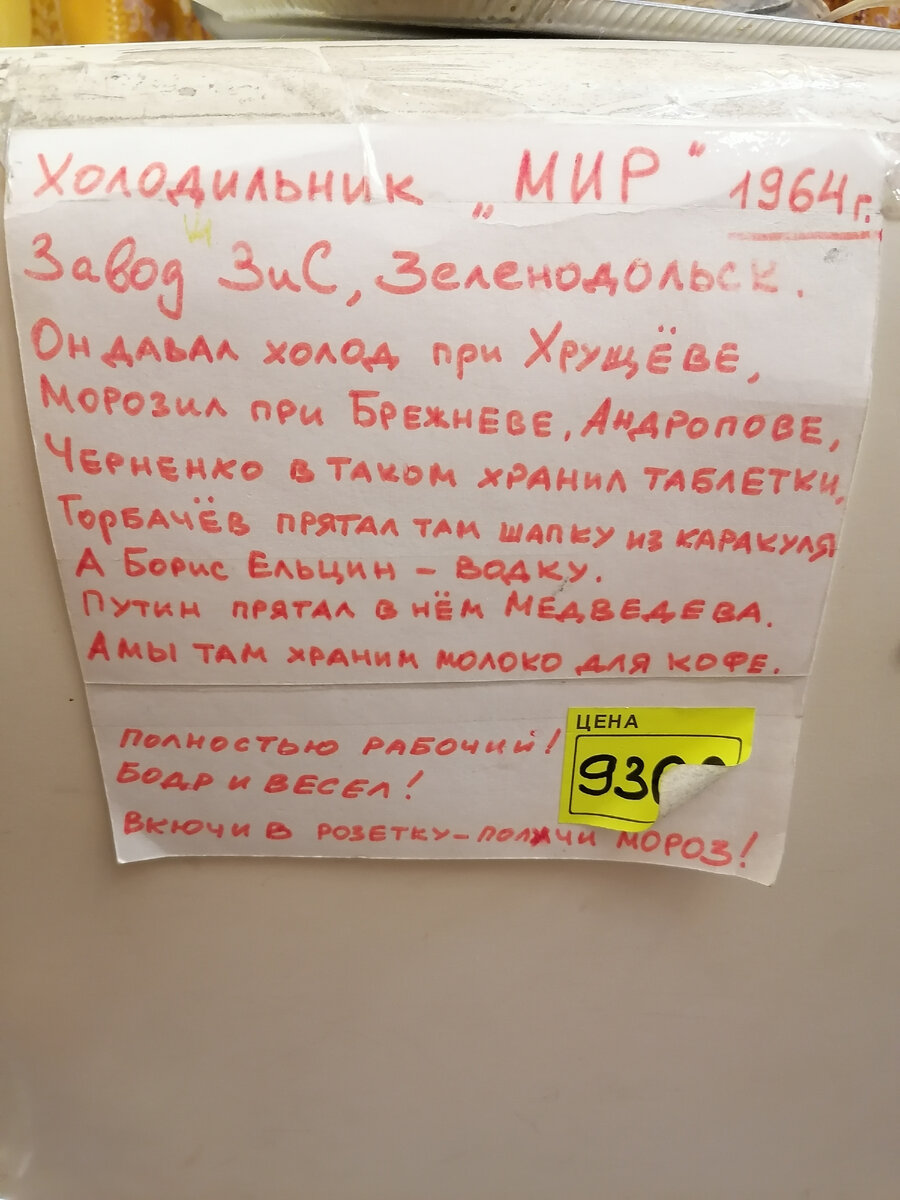 Холодильник „МИР" 1964г.
Завод ЗиС, Зеленодольск.
Он давал холод при Хрущёве,
Морозил при Брежневе, Андропове,
Черненко в таком хранил таблетки,
Горбачёв прятал там шапку из каракуля
А Борис Ельцин – водку.
Путин прятал в нём Медведева.
А мы там храним молоко для кофе.
Полностью рабочий!
Бодр и весел!
Вкючи в розетку – получи мороз!
ЦЕНА